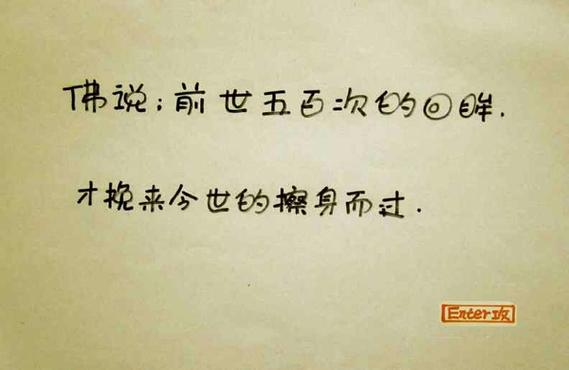 佛说:前世五百次的回眸.
才挽来今世的擦身而过.
Enter